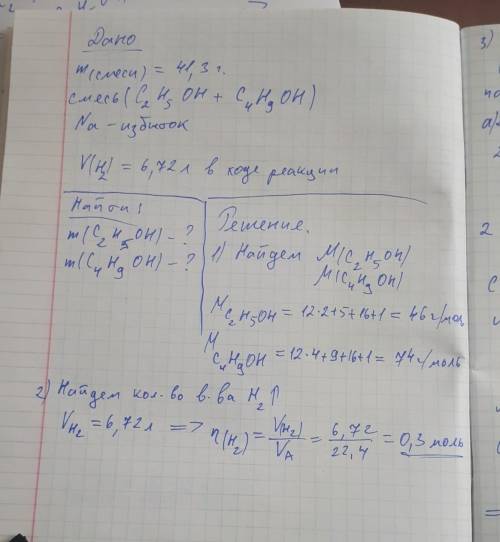 Дано
m(смеси) = 41,3 г.
смесь (C₂H₅OH + C₄H₉OH)
Na - избыток
V(H₂) = 6,72 л в ходе реакции
Найти:
m(C₂H₅OH) - ?
m(C₄H₉OH) - ?
Решение.
1) Найдем M(C₂H₅OH)
M(C₄H₉OH)
M C₂H₅OH = 12·2+5+16+1 = 46 г/моль
M C₄H₉OH = 12·4+9+16+1 = 74 г/моль
2) Найдем кол-во в-ва H₂↑
V H₂ = 6,72 л => n(H₂) = V(H₂)/V_A = 6,72/22,4 = 0,3 моль
3)
а)
2